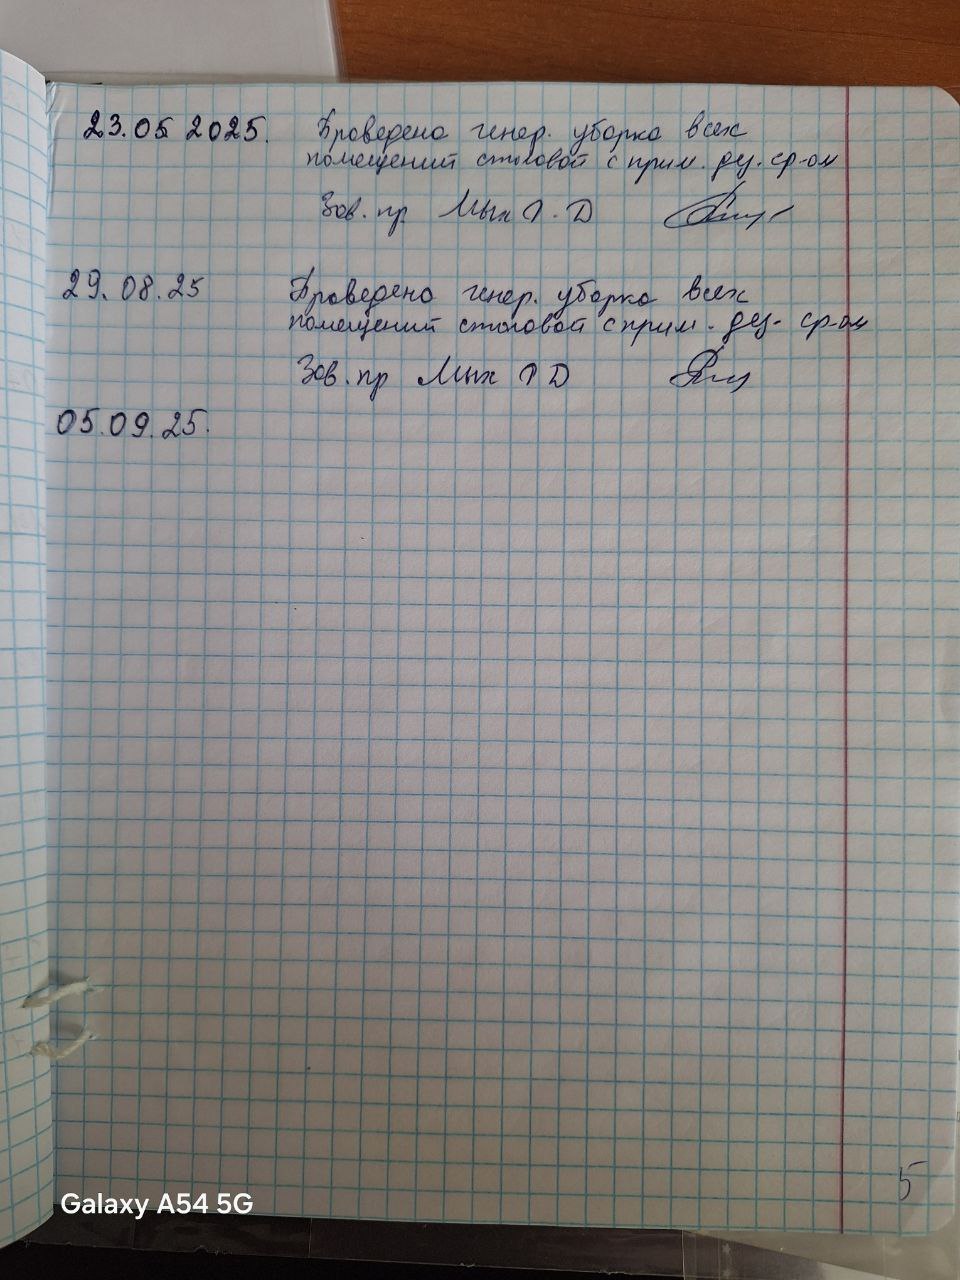 23.05 2025. Проведена генер. уборка всех
помещений столовой с прим. дез. ср-ом
Зав. пр Мых Р. Д
29.08.25 Проведена генер. уборка всех
помещений столовой с прим. дез. ср-ом
Зав. пр Мых Р Д
05.09.25.
5
Galaxy A54 5G